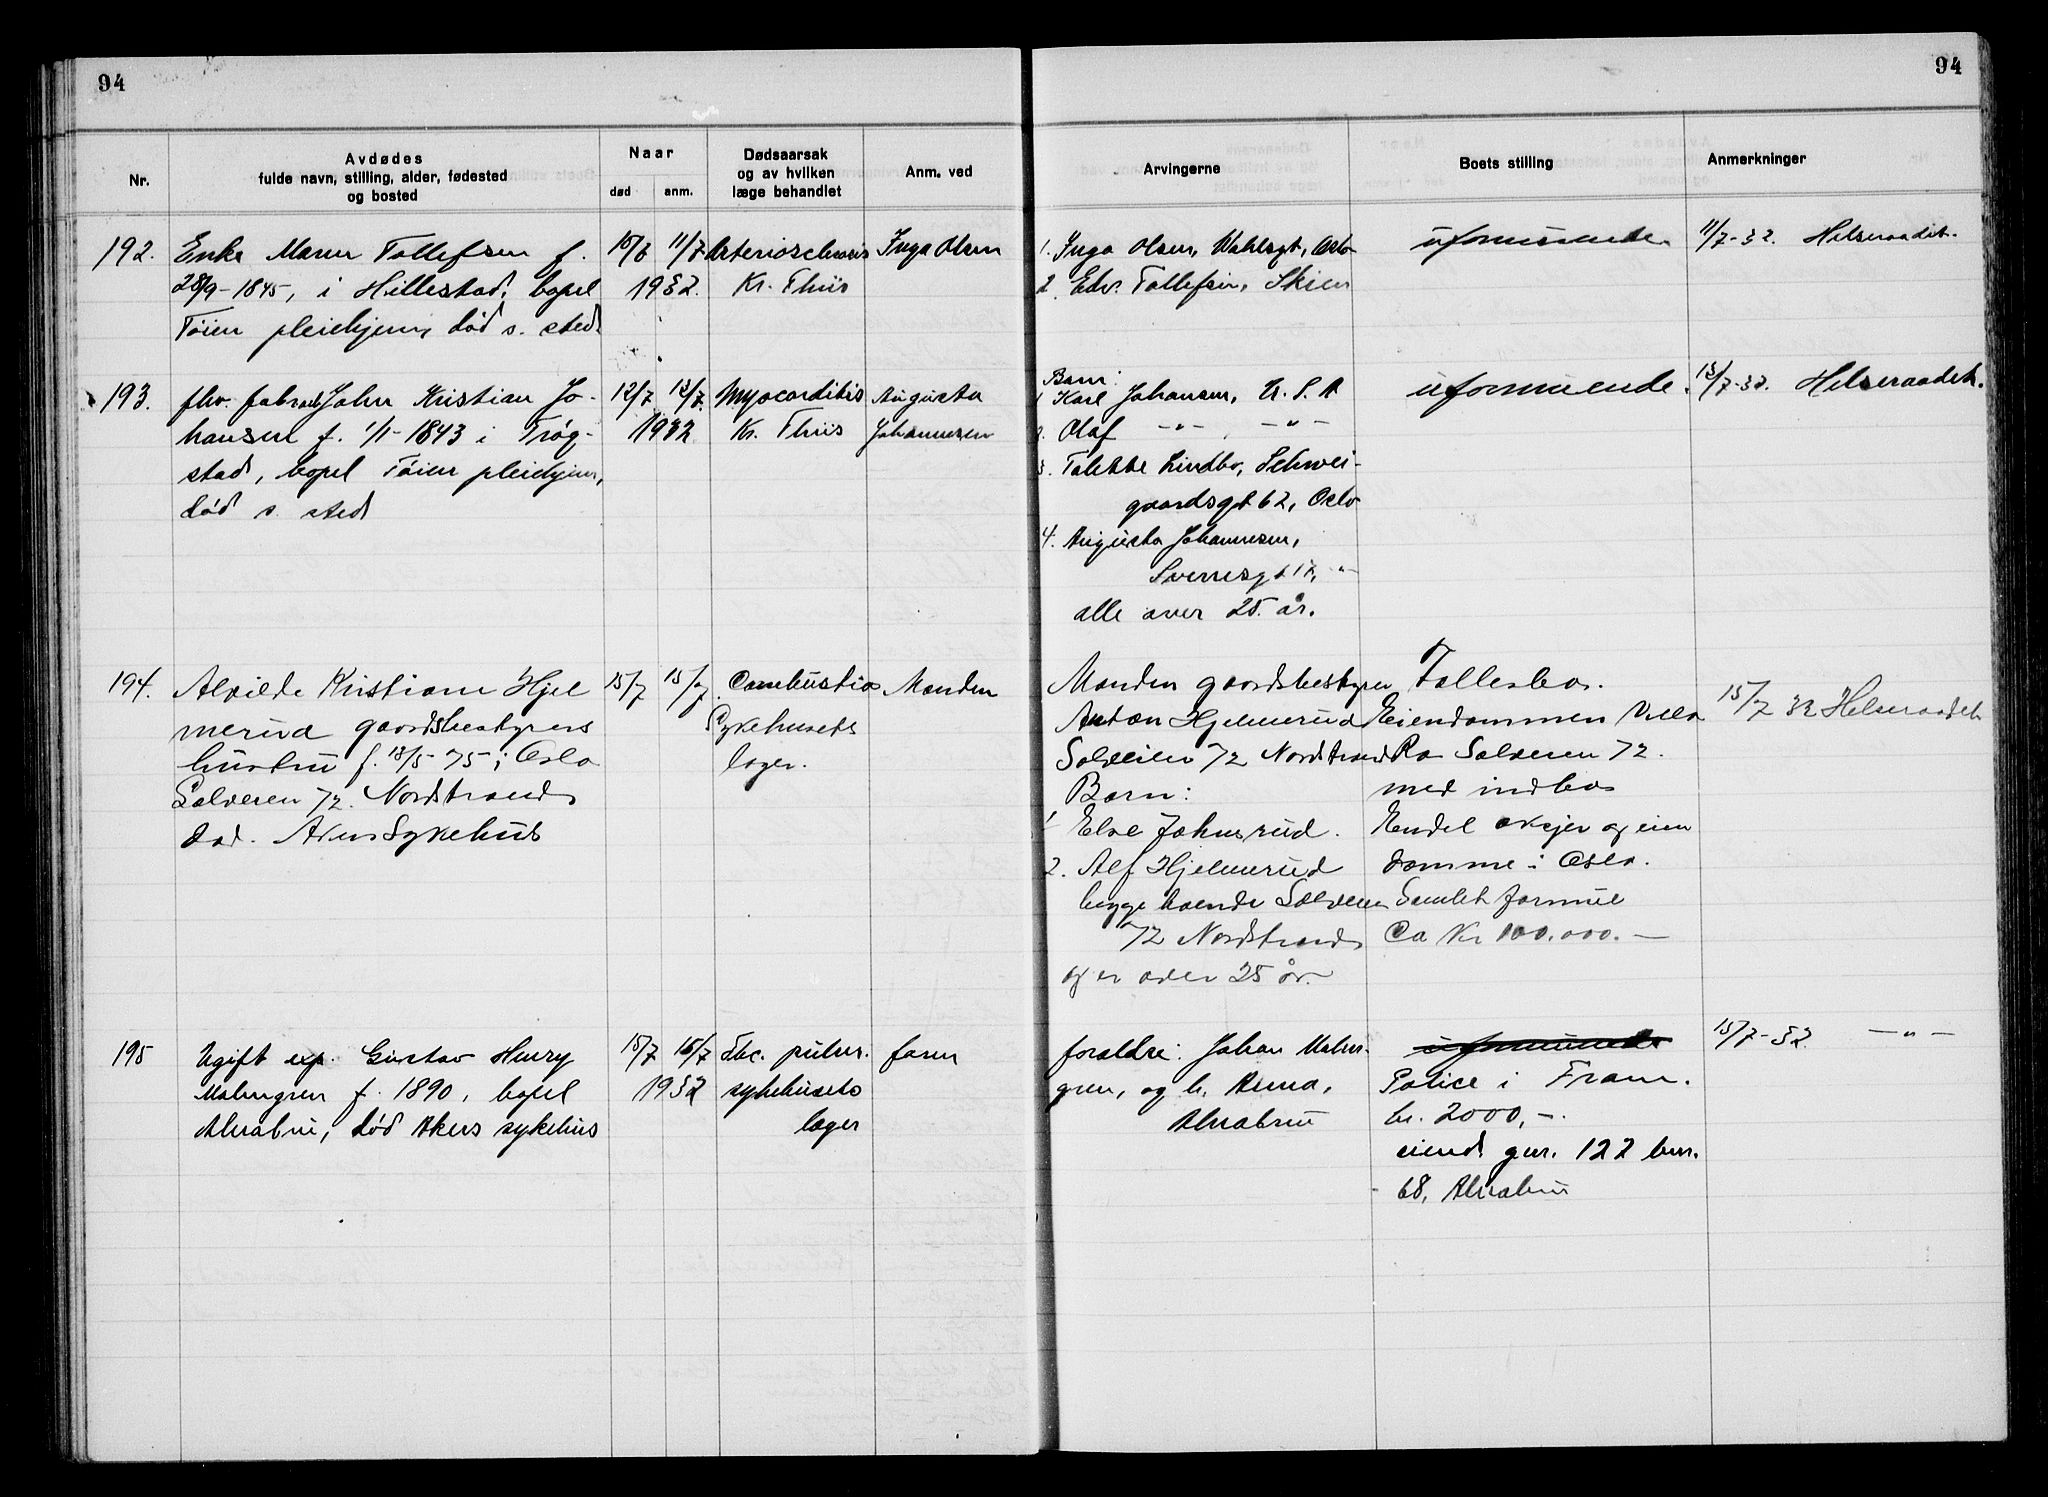 94
94
Nr.
Avdødes
fulde navn, stilling, alder, fødested
og bosted
Naar
død
anm.
Dødsaarsak
og av hvilken
læge behandlet
Anm. ved
Arvingerne
Boets stilling
Anmerkninger
192.
Enke Maren Tollefsen f.
28/9-1845, i Hillestad, bopel
Tøien pleiehjem, død s. sted
11/7
1932.
Arteriosclerosis
Kr. Thiis
Inga Olsen
1. Inga Olsen, Oslo
2. Edv. Tollefsen, Skien
uformuende
11/7-32. Helseraadet.
193.
fhv. John Kristian Jo-
hansen f. 1/1-1843 i Trøg-
stad, bopel Tøien pleiehjem,
død s. sted
12/7
13/7
1932
Myocarditis
Kr. Thiis
Augusta
Johannesen
Barn:
1 Karl Johansen, U. S. A
2. Olaf -"- , -"-
3. Lindbo, Schwei-
gaardsgt 62, Oslo
4. Augusta Johannesen,
Sverresgt "
alle over 25 år.
uformuende.
13/7-32. Helseraadet.
194.
Alvilde Kristiane Hjel
merud gaardsbestyrers
hustru f. 13/5-75 i Oslo
Solveien 72. Nordstrand
død. Aker Sykehus
15/7
15/7
Combustio
Sykehusets
læger.
Manden
Manden gaardsbestyrer
Anton Hjelmerud
Solveien 72 Nordstrand
Barn:
1 Else Johnsrud.
2. Alf Hjelmerud
begge boende Solveien
72 Nordstrand
og er over 25 år.
Fællesbo.
Eiendommen Villa
Ro Solveien 72.
med indbo
Endel aksjer og eien
domme i Oslo.
Samlet formue
Ca Kr 100.000.-
15/7 32 Helseraadet
195
Ugift exp. Gustav Henry
Malmgren f. 1890, bopel
Alnabru, død Akers sykehus
15/7
15/7
1932
Tbc. pulm.
sykehusets
læger
faren
foreldre: Johan Malm-
gren, og h. Anna,
Alnabru
uformuende
Police i Fram.
kr. 2000,-.
eiend. gnr. 122 bnr.
68, Alnabru
15/7-32. -"-